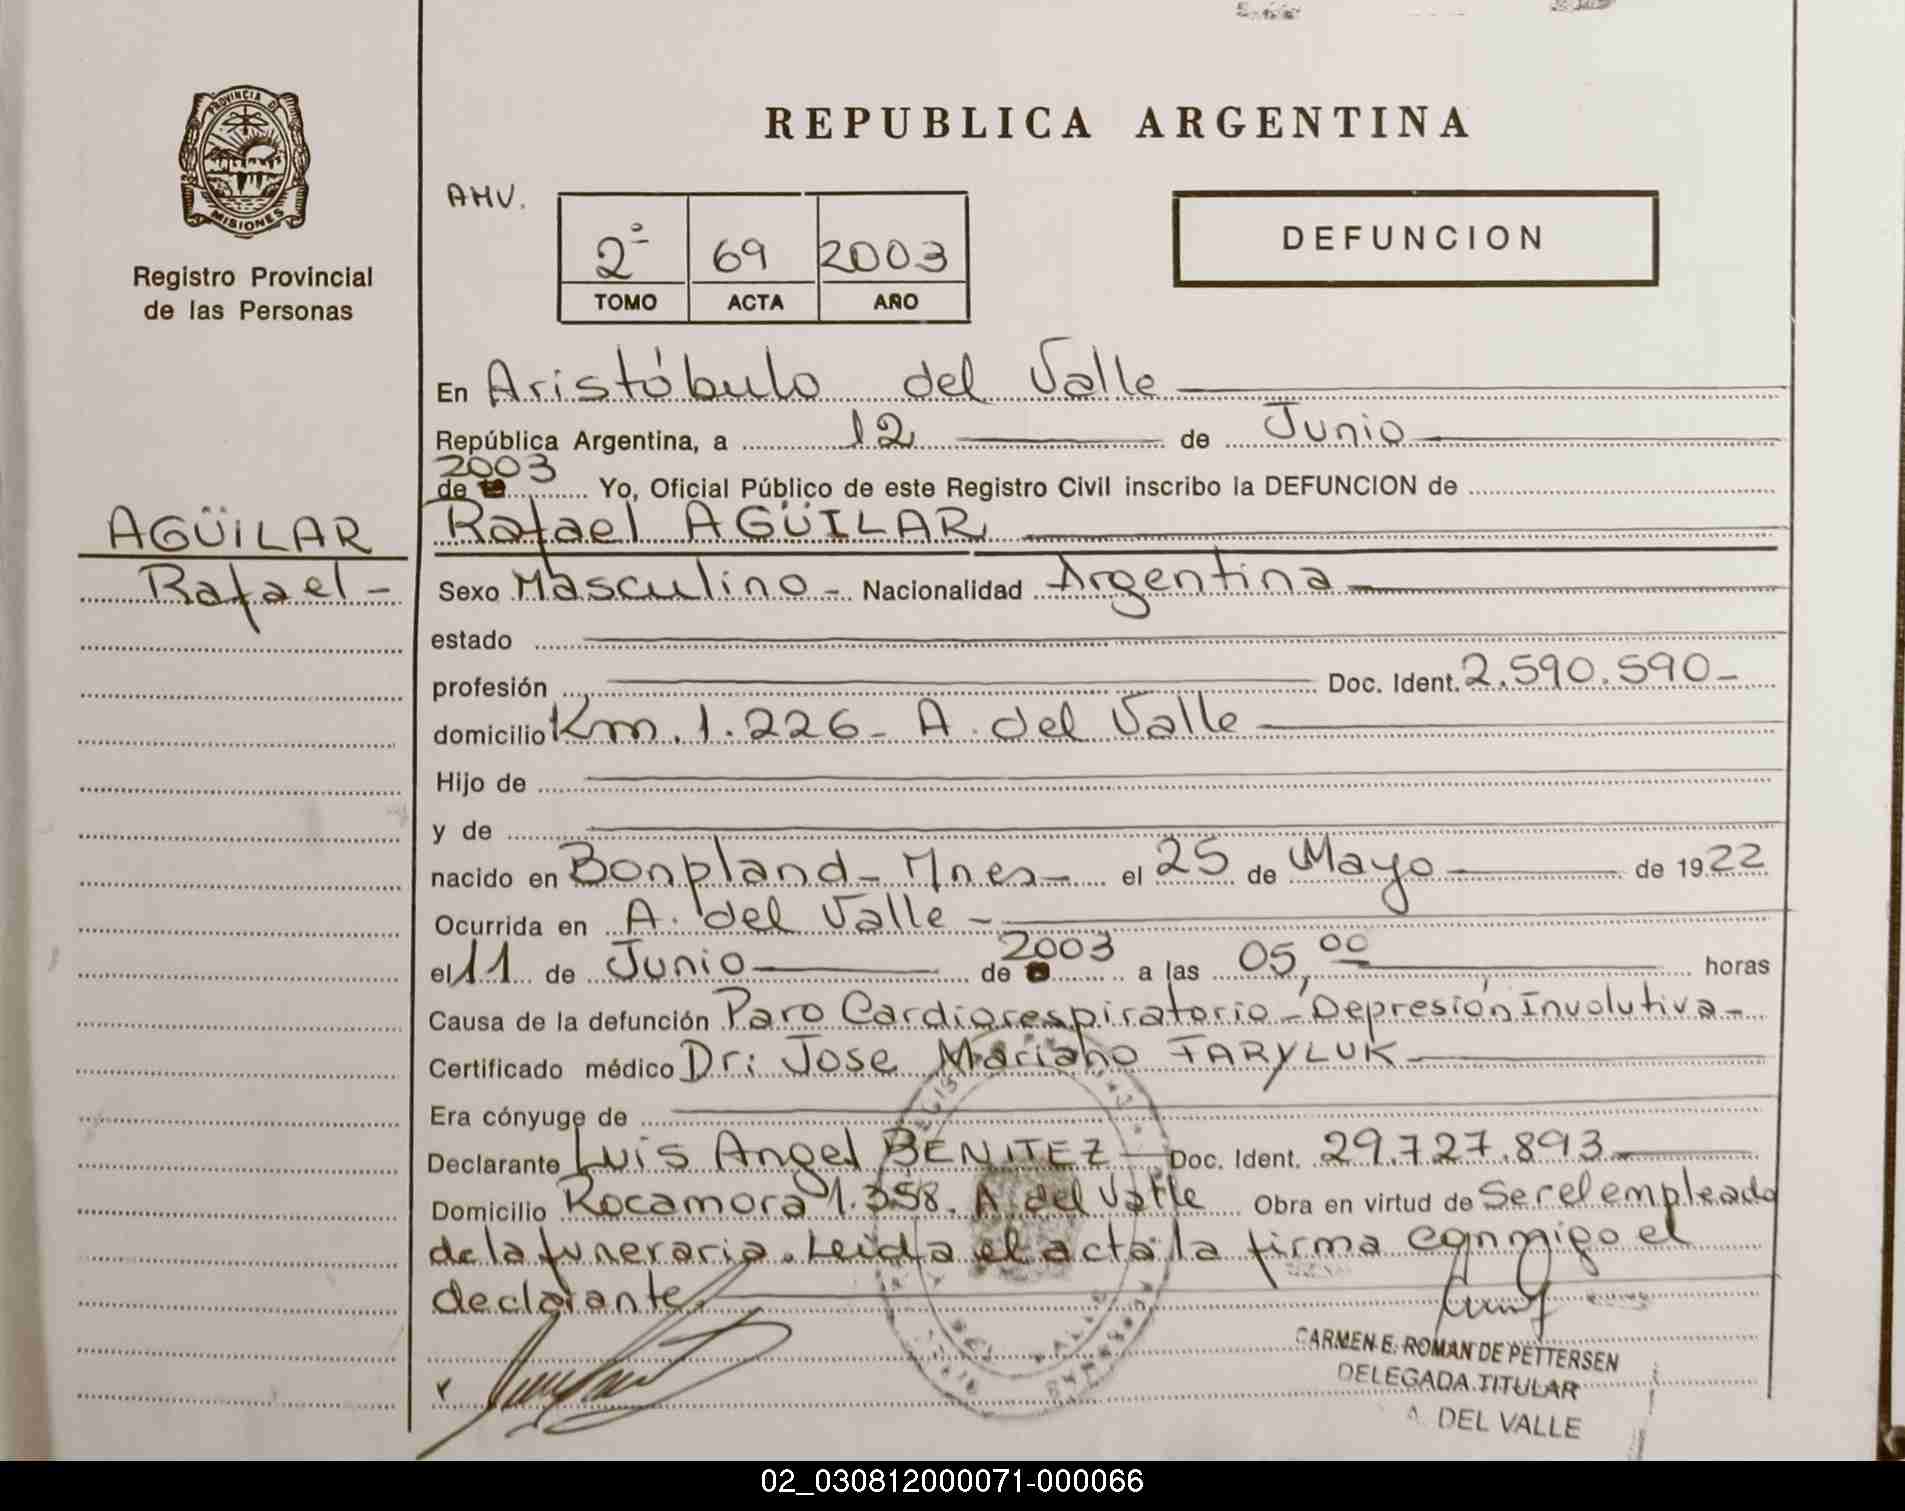 REPUBLICA ARGENTINA
PROVINCIA DE
MISIONES
Registro Provincial
de las Personas
AMV.
2º 69 2003
TOMO ACTA AÑO
DEFUNCION
En Aristóbulo del Valle
República Argentina, a 12 de Junio
2003
de Yo, Oficial Público de este Registro Civil inscribo la DEFUNCION de
AGÜILAR
Rafael -
Rafael AGÜILAR
Sexo Masculino - Nacionalidad Argentina
estado
profesión Doc. Ident. 2.590.590 -
domicilio Km. 1.226 - A. del Valle
Hijo de
y de
nacido en Bonpland - Mnes - el 25 de Mayo de 1922
Ocurrida en A. del Valle -
el 11 de Junio de 2003 a las 05,00 horas
Causa de la defunción Paro Cardiorespiratorio - Depresión Involutiva -
Certificado médico Dr: Jose Mariano TARYLUK
Era cónyuge de
Declarante Luis Angel BENITEZ Doc. Ident. 29.727.893
Domicilio Rocamora 1.358. A. del Valle Obra en virtud de Ser el empleado
de la funeraria. Leida el acta la firma conmigo el
declarante.
CARMEN E. ROMAN DE PETTERSEN
DELEGADA TITULAR
A. DEL VALLE
02_030812000071-000066